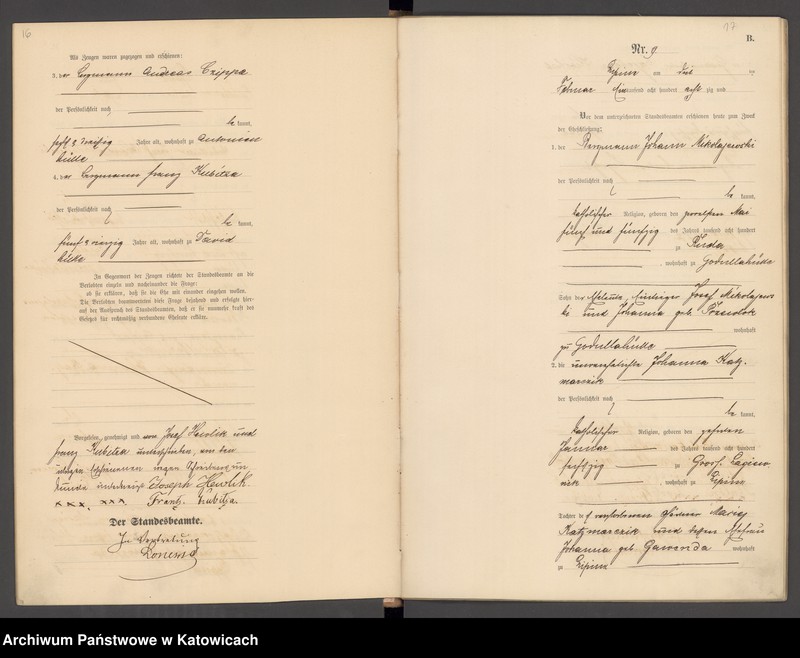 16
Als Zeugen waren zugezogen und erschienen:
3. der Bergmann Andreas Czippa
der Persönlichkeit nach
be kannt,
sechs & dreißig Jahre alt, wohnhaft zu Antonien
hütte
4. der Bergmann Franz Kubitza
der Persönlichkeit nach
be kannt,
fünf & vierzig Jahre alt, wohnhaft zu David
hütte
In Gegenwart der Zeugen richtete der Standesbeamte an die
Verlobten einzeln und nacheinander die Frage:
ob sie erklären, daß sie die Ehe mit einander eingehen wollen.
Die Verlobten beantworteten diese Frage bejahend und erfolgte hier-
auf der Ausspruch des Standesbeamten, daß er sie nunmehr kraft des
Gesetzes für rechtmäßig verbundene Eheleute erkläre.
Vorgelesen, genehmigt und von Josef Hewlik und
Franz Kubitza unterschrieben, von den
übrigen Erschienenen wegen Schreibensun
kunde unterkreuzt Joseph Hewlik
xxx. xxx Frantz. Kubitza.
Der Standesbeamte.
In Vertretung
17
B.
Nr. 9
Lipine am
Februar Eintausend acht hundert acht zig und
Vor dem unterzeichneten Standesbeamten erschienen heute zum Zweck
der Eheschließung:
1. der Bergmann Johann Mikolajewski
der Persönlichkeit nach
be kannt,
katholischer Religion, geboren den zwölften Mai
fünf und fünfzig des Jahres tausend acht hundert
zu Ruda
, wohnhaft zu Godullahütte
Sohn der Josef Mikolajews
ki und Johanna geb.
wohnhaft
zu Godullahütte
2. die unverehelichte Johanna Katz-
marczik
der Persönlichkeit nach
be kannt,
katholischer Religion, geboren den zehnten
Januar des Jahres tausend acht hundert
sechszig zu Gross Lagiew
nik, wohnhaft zu Lipine
Tochter des verstorbenen
Katzmarczik und dessen Ehefrau
Johanna geb. Gawenda wohnhaft
zu Lipine
Archiwum Państwowe w Katowicach